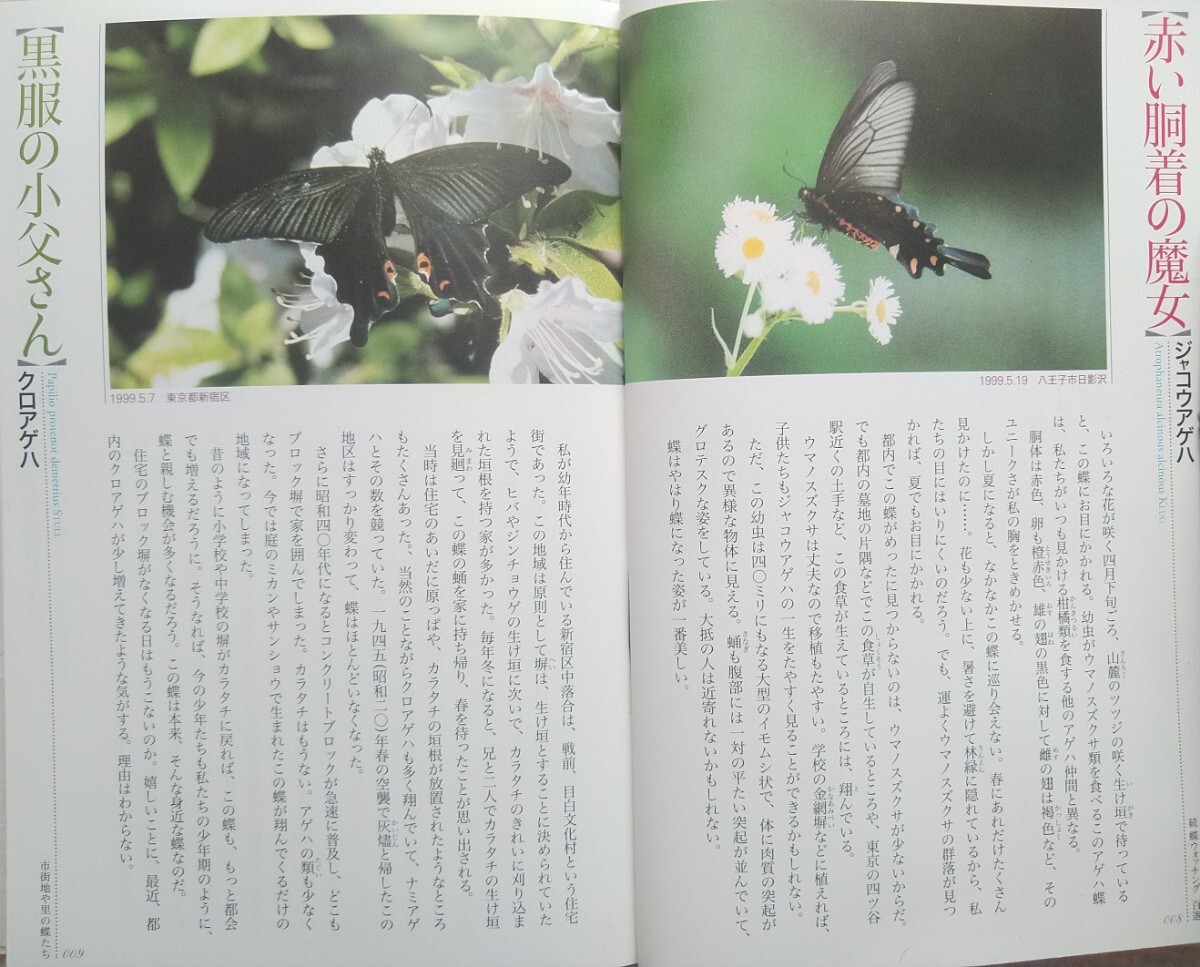 【赤い胴着の魔女】
ジャコウアゲハ
Atrophaneura alcinous alcinous KLUG
1999.5.19 八王子市日影沢
いろいろな花が咲く四月下旬ごろ、山麓のツツジの咲く生け垣で待っている
と、この蝶にお目にかかれる。幼虫がウマノスズクサ類を食べるこのアゲハ蝶
は、私たちがいつも見かける柑橘類を食する他のアゲハ仲間と異なる。
胴体は赤色、卵も橙赤色、雄の翅の黒色に対して雌の翅は褐色など、その
ユニークさが私の胸をときめかせる。
しかし夏になると、なかなかこの蝶に巡り会えない。春にあれだけたくさん
見かけたのに……。花も少ない上に、暑さを避けて林縁に隠れているから、私
たちの目にはいりにくいのだろう。でも、運よくウマノスズクサの群落が見つ
かれば、夏でもお目にかかれる。
都内でこの蝶がめったに見つからないのは、ウマノスズクサが少ないからだ。
でも都内の墓地の片隅などでこの食草が自生しているところや、東京の四ツ谷
駅近くの土手など、この食草が生えているところには、翔んでいる。
ウマノスズクサは丈夫なので移植もたやすい。学校の金網塀などに植えれば、
子供たちもジャコウアゲハの一生をたやすく見ることができるかもしれない。
ただ、この幼虫は四〇ミリにもなる大型のイモムシ状で、体に肉質の突起が
あるので異様な物体に見える。蛹も腹部には一対の平たい突起が並んでいて、
グロテスクな姿をしている。大抵の人は近寄れないかもしれない。
蝶はやはり蝶になった姿が一番美しい。
続 蝶ウォッチング 百選
008
【黒服の小父さん】
クロアゲハ
Papilio protenor demetrius STOLL
1999.5.7 東京都新宿区
私が幼年時代から住んでいる新宿区中落合は、戦前、目白文化村という住宅
街であった。この地域は原則として塀は、生け垣とすることに決められていた
ようで、ヒバやジンチョウゲの生け垣に次いで、カラタチのきれいに刈り込ま
れた垣根を持つ家が多かった。毎年冬になると、兄と二人でカラタチの生け垣
を見廻って、この蝶の蛹を家に持ち帰り、春を待ったことが思い出される。
当時は住宅のあいだに原っぱや、カラタチの垣根が放置されたようなところ
もたくさんあった。当然のことながらクロアゲハも多く翔んでいて、ナミアゲ
ハとその数を競っていた。一九四五(昭和二〇)年春の空襲で灰燼と帰したこの
地区はすっかり変わって、蝶はほとんどいなくなった。
さらに昭和四〇年代になるとコンクリートブロックが急速に普及し、どこも
ブロック塀で家を囲んでしまった。カラタチはもうない。アゲハの類も少なく
なった。今では庭のミカンやサンショウで生まれたこの蝶が翔んでくるだけの
地域になってしまった。
昔のように小学校や中学校の塀がカラタチに戻れば、この蝶も、もっと都会
でも増えるだろうに。そうなれば、今の少年たちも私たちの少年期のように、
蝶と親しむ機会が多くなるだろう。この蝶は本来、そんな身近な蝶なのだ。
住宅のブロック塀がなくなる日はもうこないのか。嬉しいことに、最近、都
内のクロアゲハが少し増えてきたような気がする。理由はわからない。
市街地や里の蝶たち
009